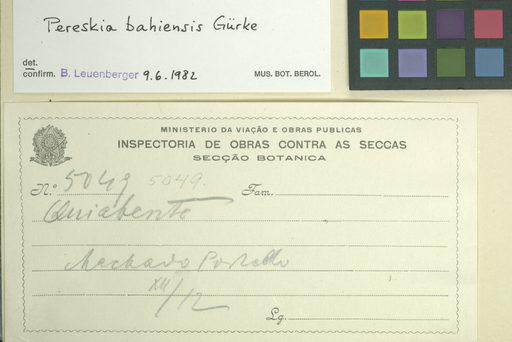 Pereskia bahiensis Gürke
det.
confirm. B. Leuenberger 9.6.1982 MUS. BOT. BEROL.
MINISTERIO DA VIAÇÃO E OBRAS PUBLICAS
INSPECTORIA DE OBRAS CONTRA AS SECCAS
SECÇÃO BOTANICA
N.º 5049 5049. Fam.
Quiabento
Machado Portello
XII/12
Lg.